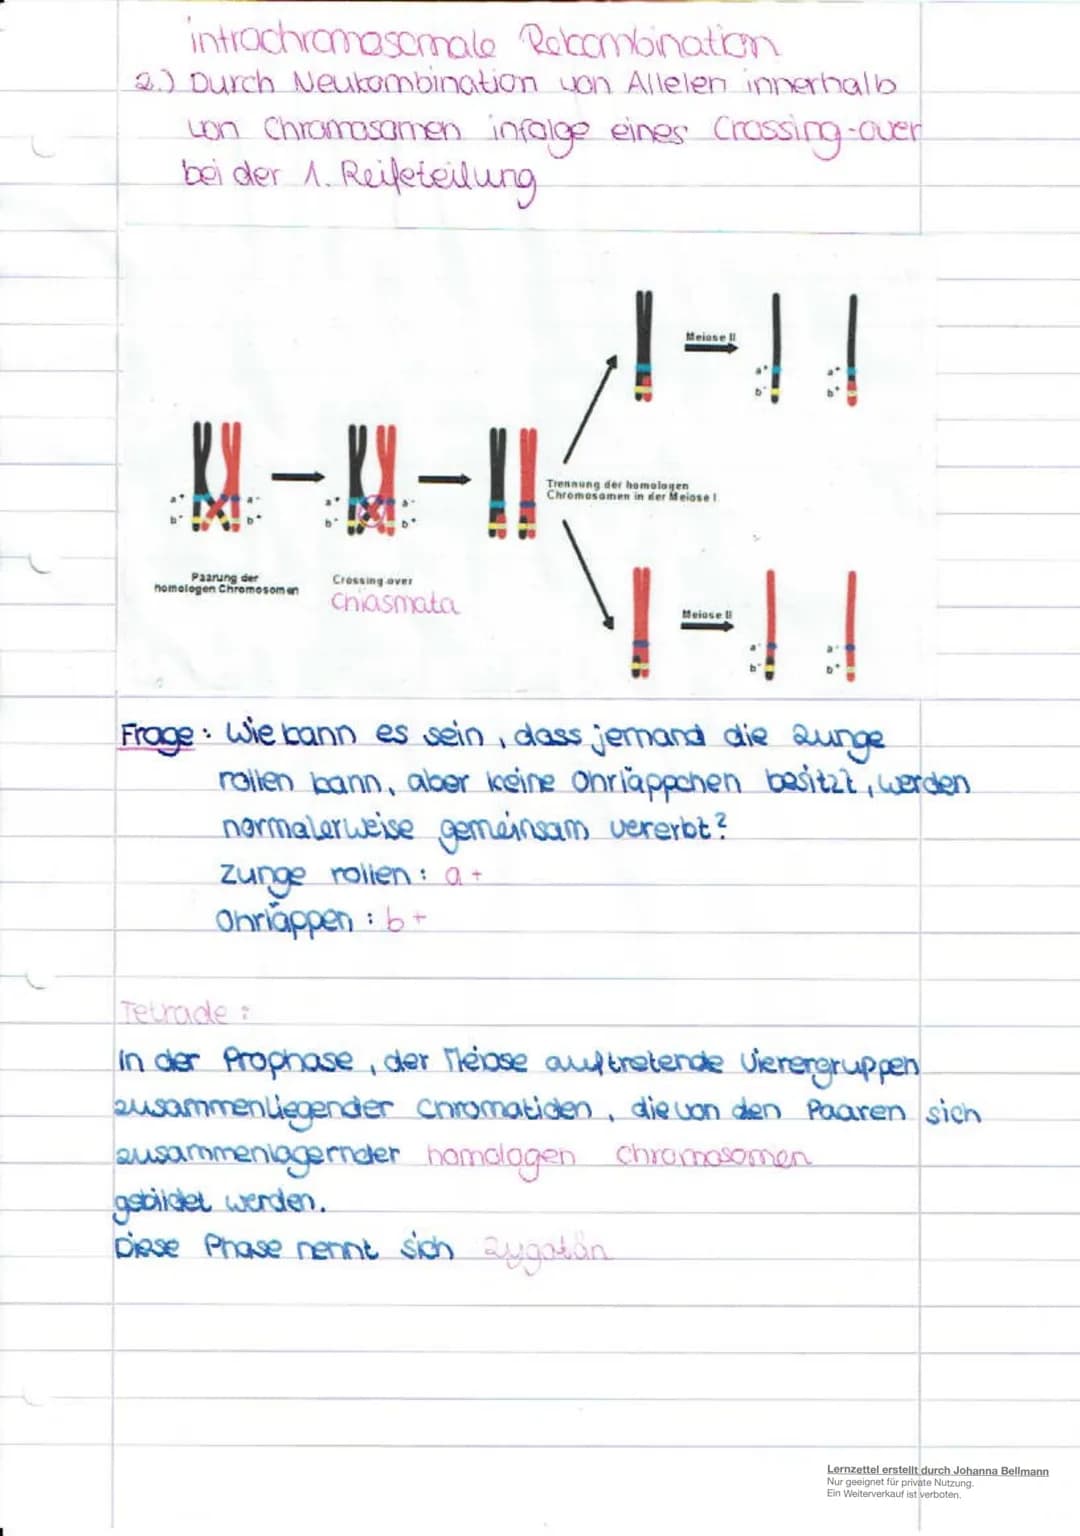 intrachromosomale Rekombination
2.) Durch Neukombination von Allelen innerhalb
von Chromosomen infolge eines Crossing-over
bei der 1. Reifeteilung
Meiose II
a+ a+
b- b+
Trennung der homologen
Chromosomen in der Meiose I
a+ a- a+ a-
b- b+ b- b+
Paarung der
homologen Chromosomen
Crossing over
Chiasmata
Meiose II
a- a-
b- b+
Frage: Wie kann es sein, dass jemand die Zunge
rollen kann, aber keine Ohrläppchen besitzt, werden
normalerweise gemeinsam vererbt?
Zunge rollen: a+
Ohrläppen: b+
Tetrade:
In der Prophase, der Meiose auftretende Vierergruppen
zusammenliegender Chromatiden, die von den Paaren sich
zusammenlagernder homologen Chromosomen
gebildet werden.
Diese Phase nennt sich Zygotän
Lernzettel erstellt durch Johanna Bellmann
Nur geeignet für private Nutzung.
Ein Weiterverkauf ist verboten.